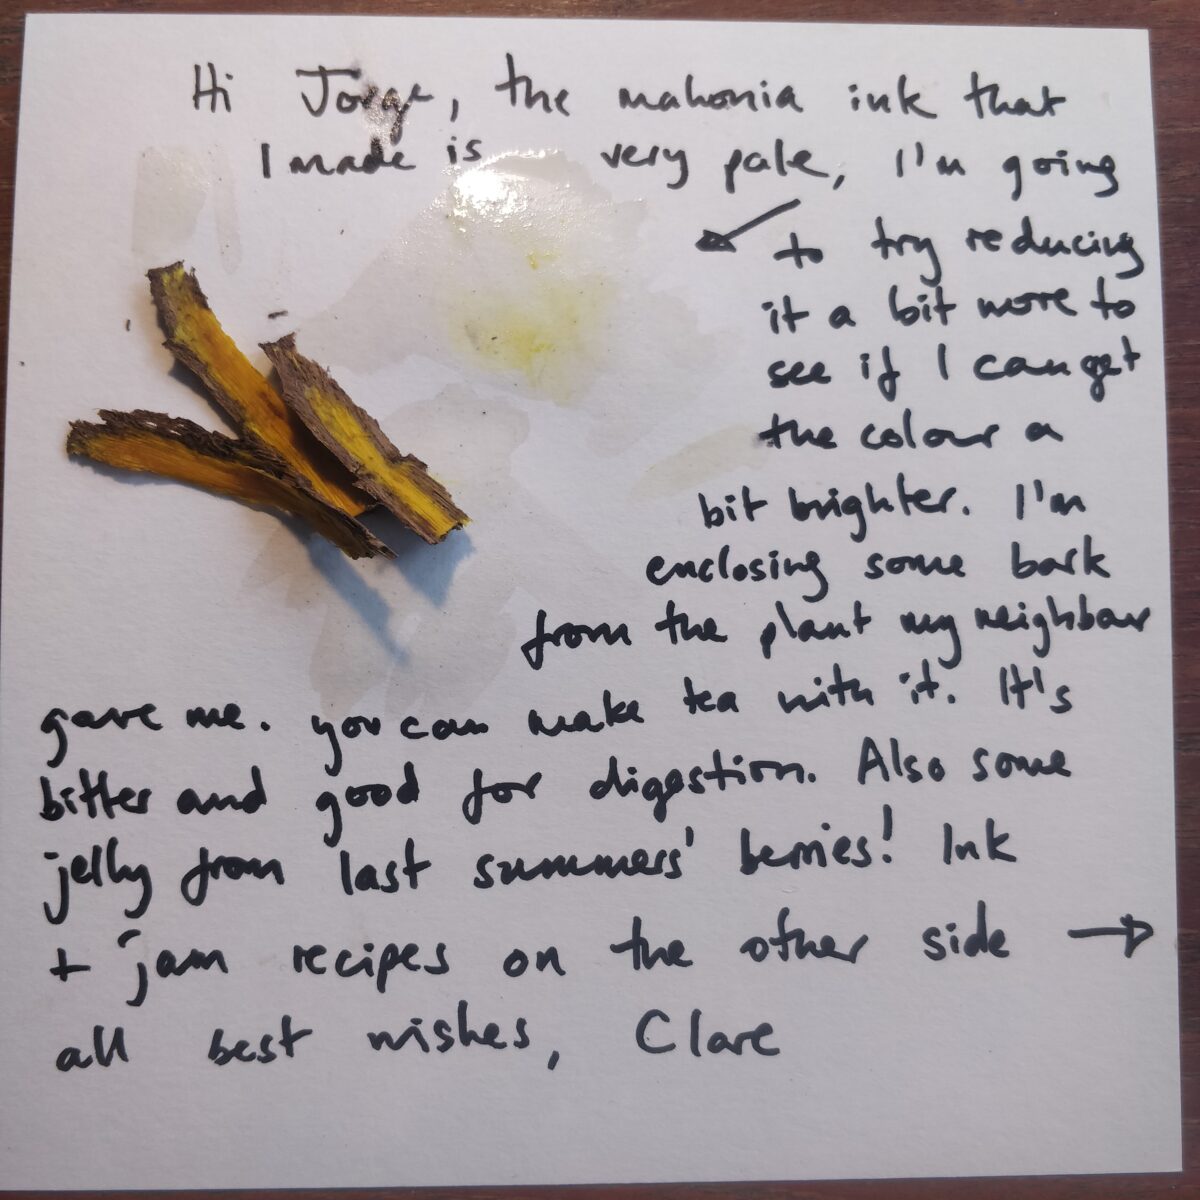 Hi Jorge, the mahonia ink that
I made is very pale, I'm going
to try reducing
it a bit more to
see if I can get
the colour a
bit brighter. I'm
enclosing some bark
from the plant my neighbour
gave me. you can make tea with it. It's
bitter and good for digestion. Also some
jelly from last summers' berries! Ink
+ jam recipes on the other side →
all best wishes, Clare